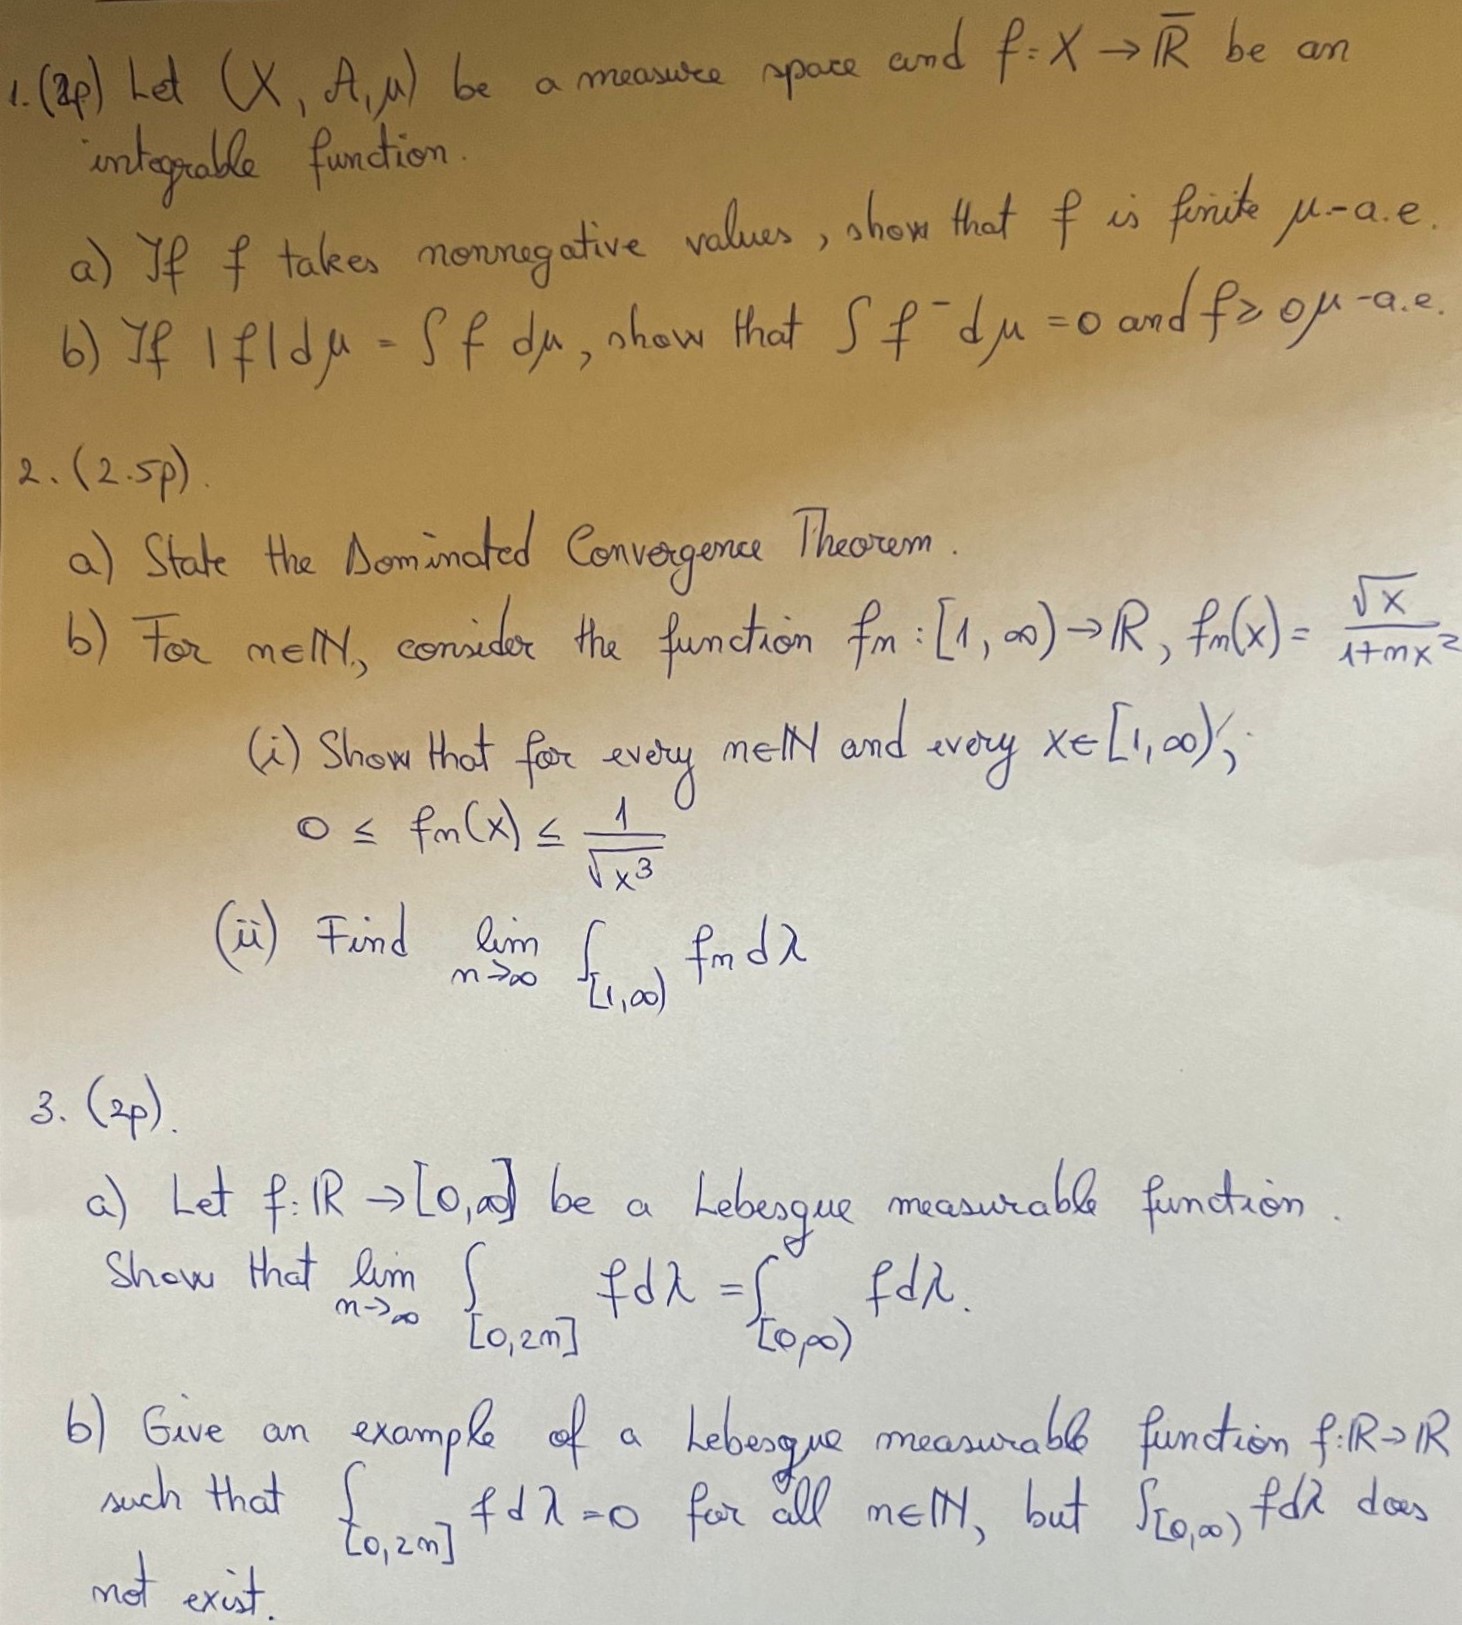 1. (2p) Let (X, A, μ) be a measure space and f: X → ℝ̅ be an
integrable function.
a) If f takes nonnegative values, show that f is finite μ-a.e.
b) If |f|dμ = ∫ f dμ, show that ∫ f⁻ dμ = 0 and f ≥ 0 μ-a.e.
2. (2.5p).
a) State the Dominated Convergence Theorem.
b) For n∈ℕ, consider the function fn : [1, ∞) → ℝ, fn(x) = √x / (1+nx²)
(i) Show that for every n∈ℕ and every x∈[1, ∞),
0 ≤ fn(x) ≤ 1/√x³
(ii) Find lim n→∞ ∫[1,∞) fn dλ
3. (2p).
a) Let f: ℝ → [0,∞] be a Lebesgue measurable function.
Show that lim n→∞ ∫[0,2n] f dλ = ∫[0,∞) f dλ.
b) Give an example of a Lebesgue measurable function f: ℝ → ℝ
such that ∫[0,2n] f dλ = 0 for all n∈ℕ, but ∫[0,∞) f dλ does
not exist.